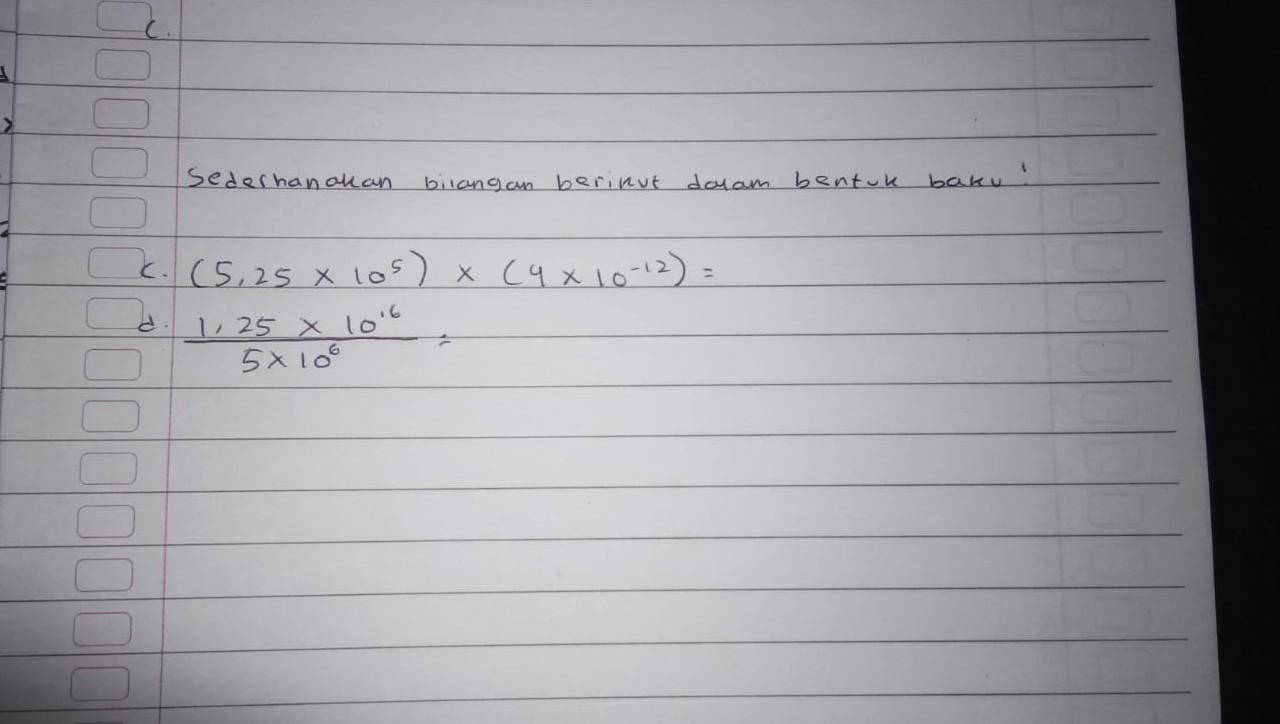 c.
Sederhanakan bilangan berikut dalam bentuk baku!
c. (5,25 × 10⁵) × (4 × 10⁻¹²) =
d. 1,25 × 10¹⁶
5 × 10⁶ =